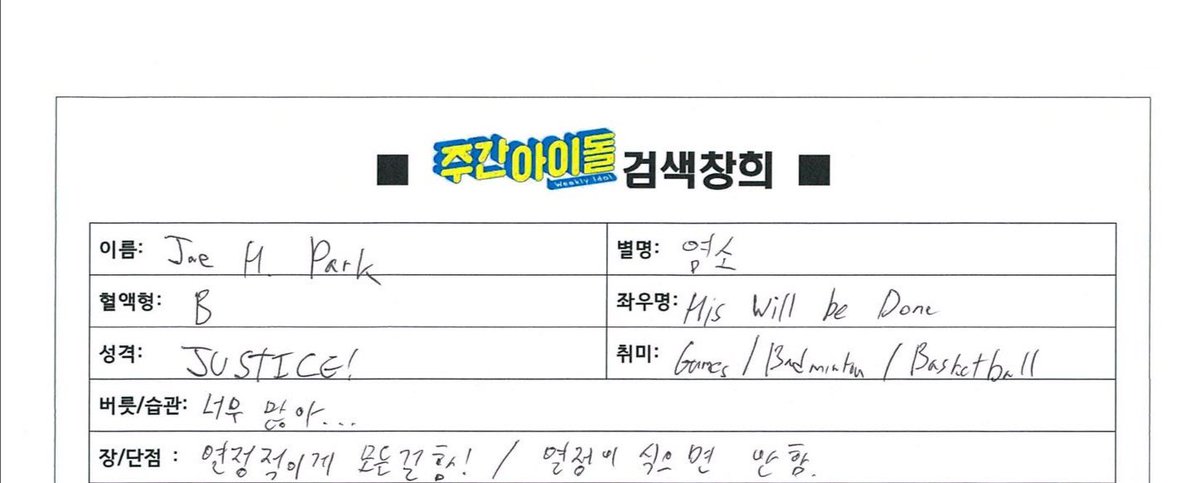 ■ 주간아이돌 Weekly Idol 검색창희 ■
이름: Jae H. Park 별명: 염소
혈액형: B 좌우명: His Will be Done
성격: JUSTICE! 취미: Games / Badminton / Basketball
버릇/습관: 너무 많아...
장/단점 : 연정적이게 모든걸 함! / 열정이 식으면 안함.